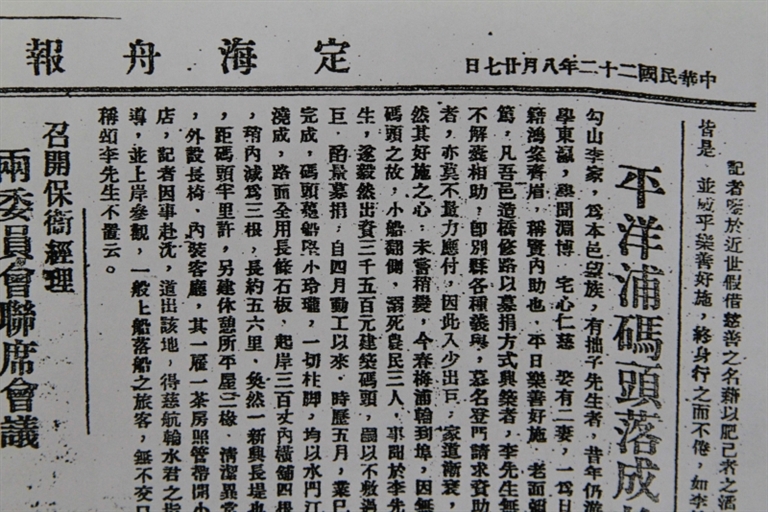 定海舟報
中華民國二十二年八月廿七日
記者鑒於近世假借慈善之名藉以肥己者之滔
皆是 並感乎樂善好施，終身行之而不倦，如李
平洋浦碼頭落成
勾山李家，為本邑望族，有拙子先生者，昔年仍游
學東瀛，學聞淵博 宅心仁慈 娶有二妻，一為日
籍鴻案齊眉，稱賢內助也。平日樂善好施 老面
篤，凡吾邑造橋修路以募捐方式興築者，李先生無
不解囊相助，即別縣各種義舉，慕名登門請求資助
者，亦莫不量力應付，因此入少出巨，家道漸衰，
然其好施之心，未嘗稍變，今春梅浦輪到埠，因無
碼頭之故，小船翻側，溺死農民三人，事聞於李先
生，遂毅然出資三千五百元建築碼頭，嗣以不敷過
巨，酌景募捐，自四月動工以來，時歷五月，業已
完成，碼頭躉船小玲瓏，一切柱脚，均以水門汀
澆成，路面全用長條石板，起岸三百丈內橫舖四根
，稍內減為三根，長約五六里，奐然一新長堤也
，距碼頭半里許，另建休憩所平屋三椽，清潔異常
，外設長椅，內裝客廳，其一雇一茶房照管帶開小
店，記者因事赴沈，道出該地，得慈航輪水君之指
導，並上岸參觀，一般上船落船之旅客，無不交口
稱頌李先生不置云。
召開保衛經理
兩委員會聯席會議